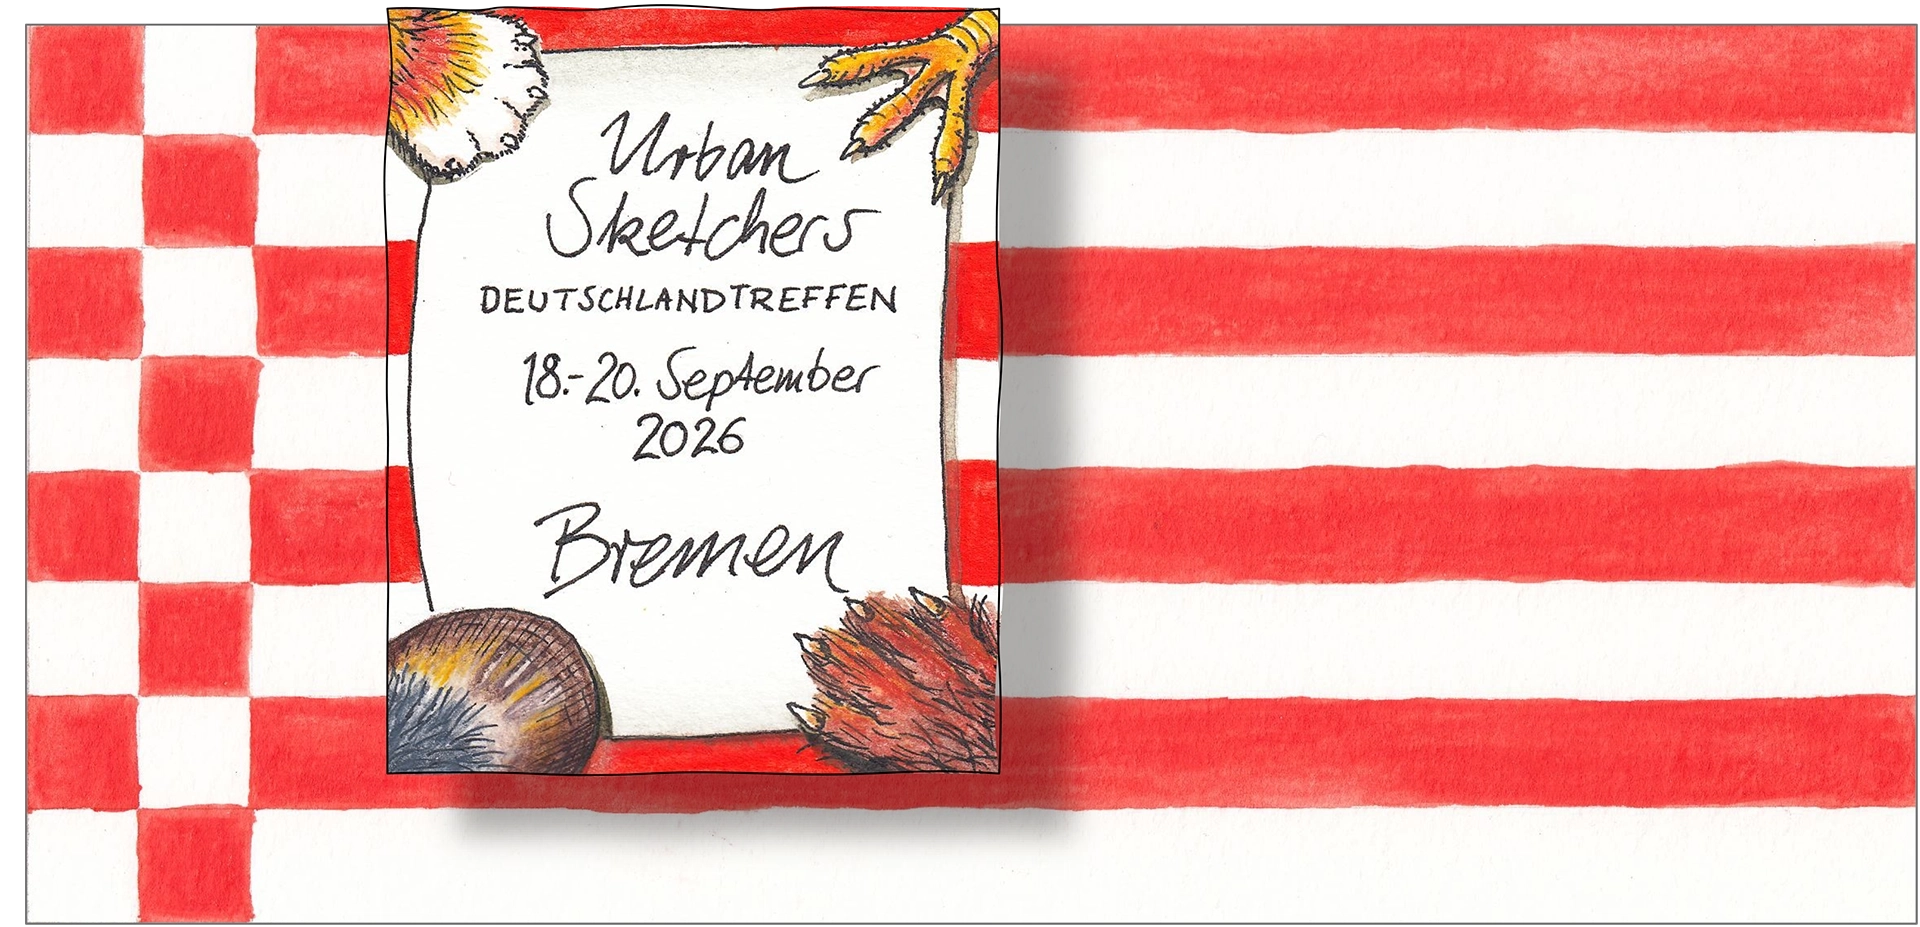 Urban
Sketchers
DEUTSCHLANDTREFFEN
18.-20. September
2026
Bremen